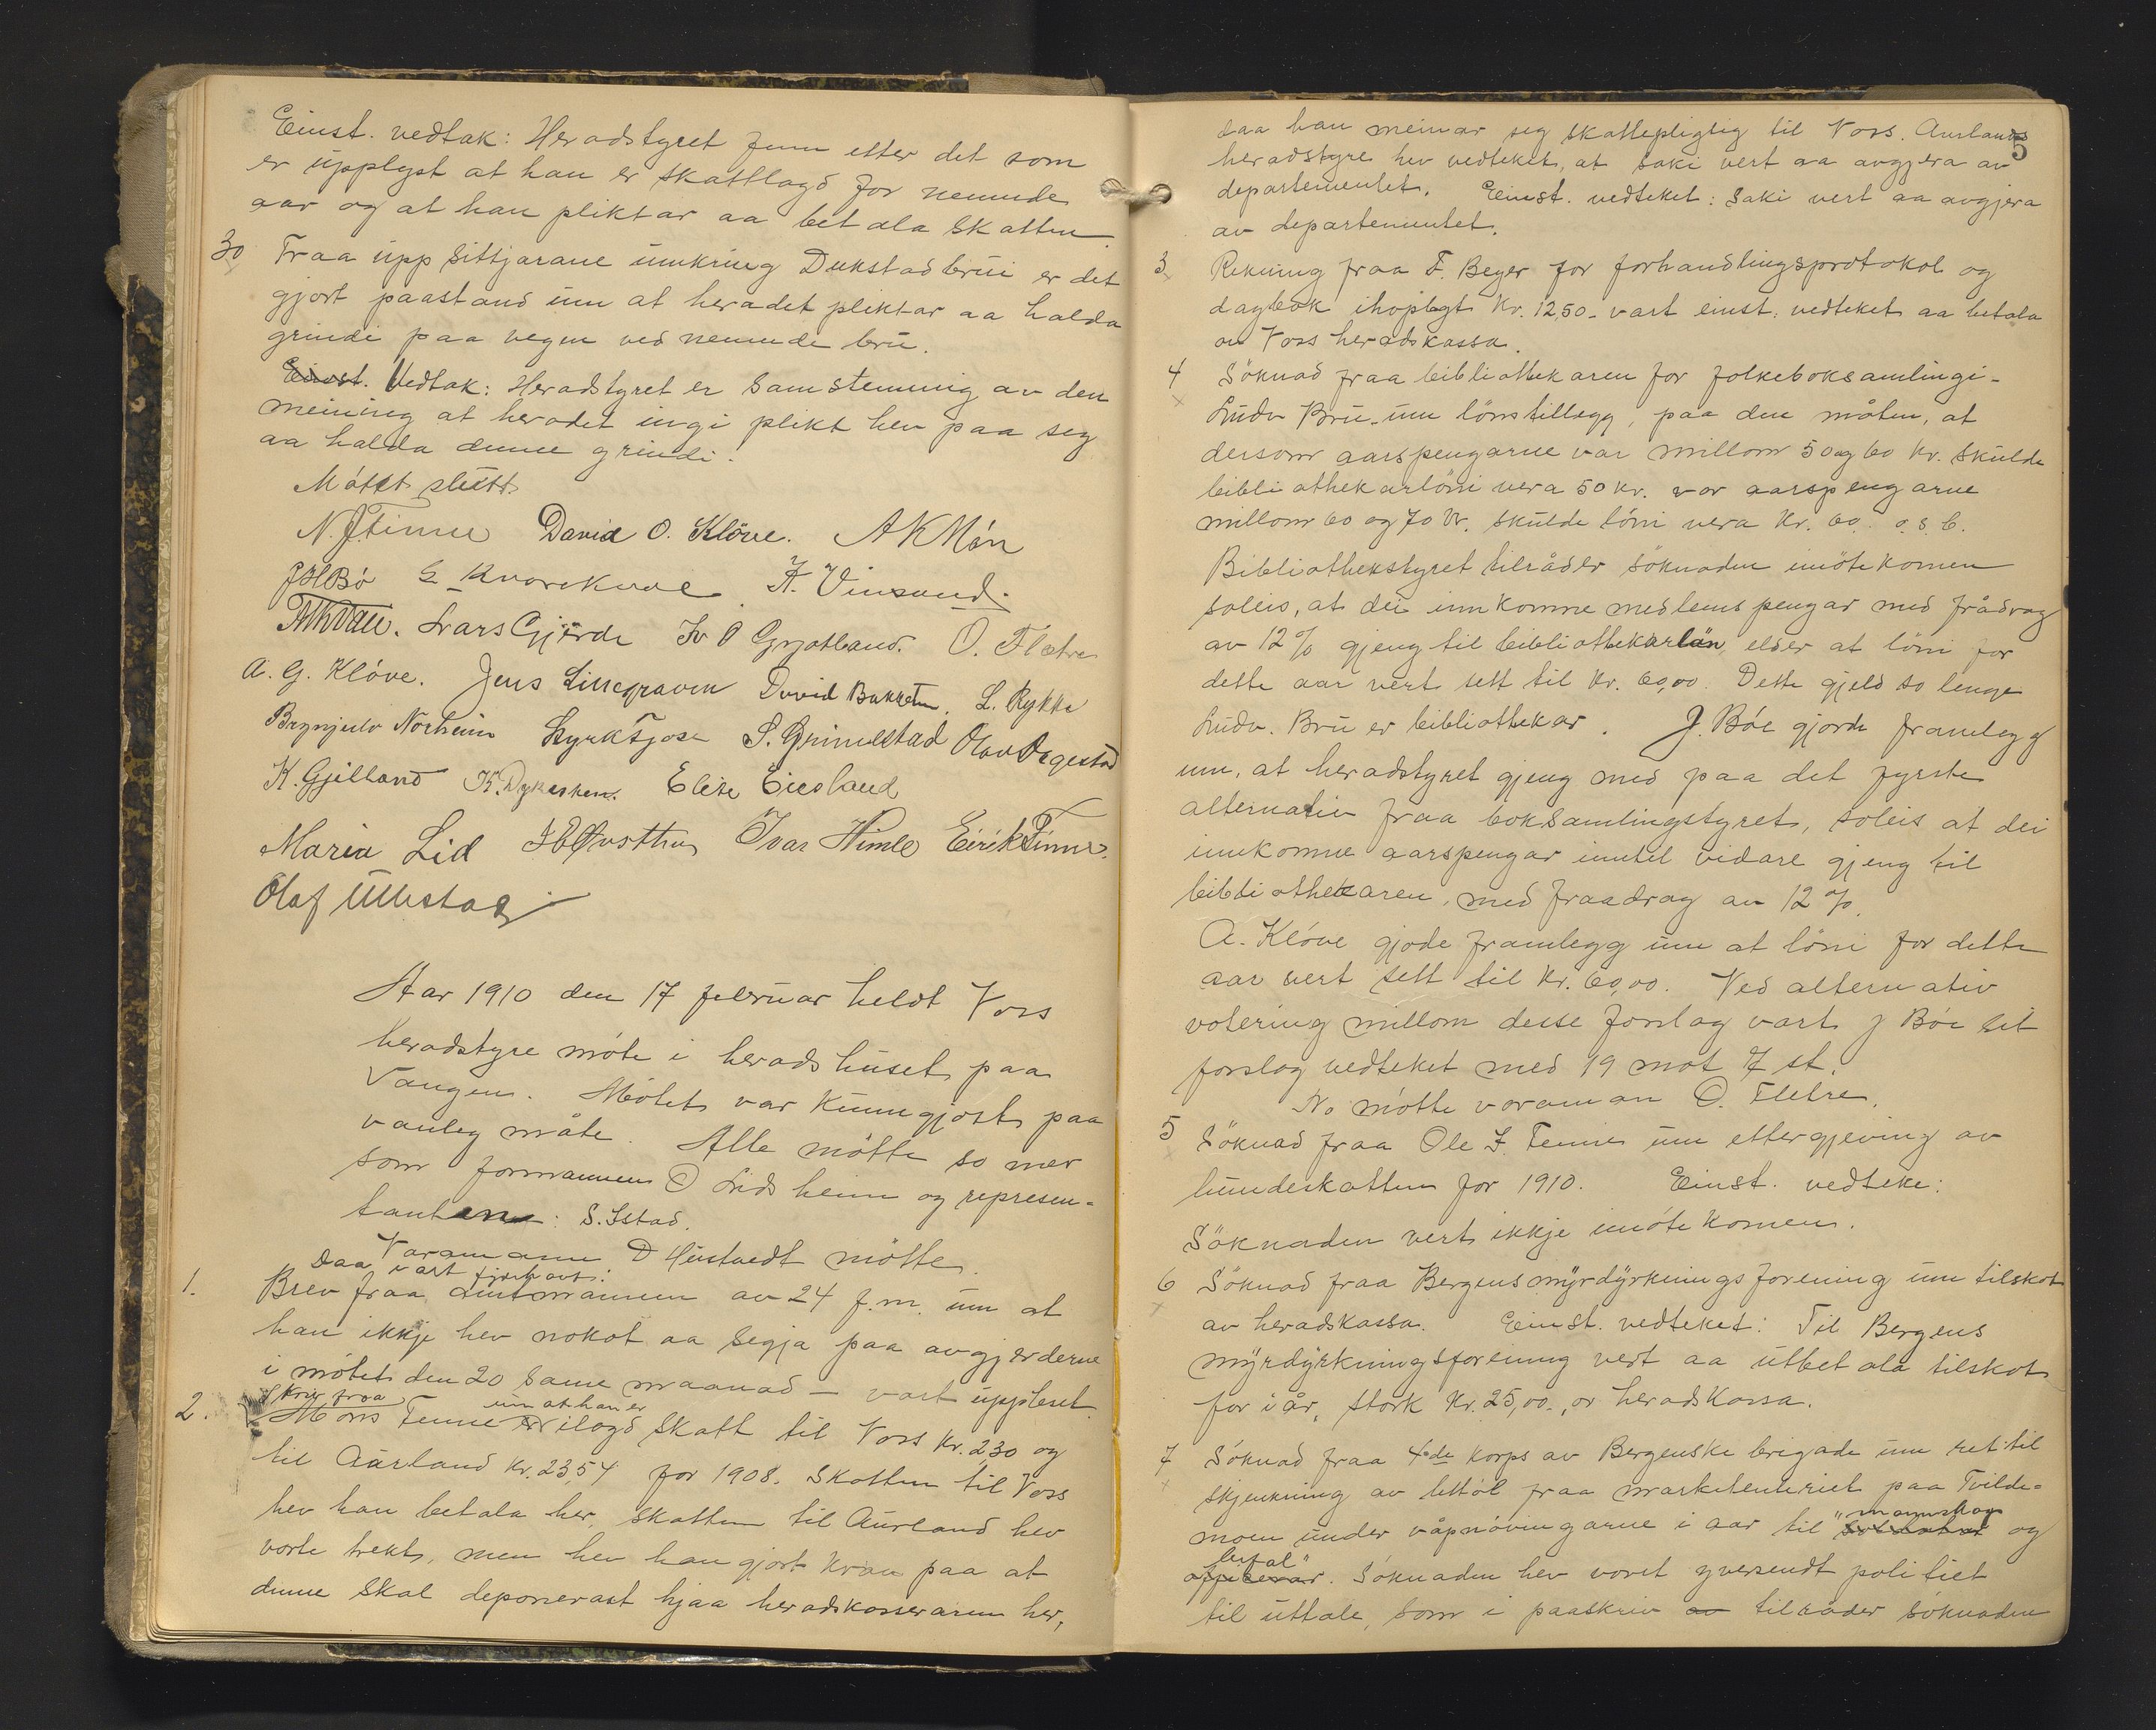 Einst. vedtak: Heradstyret funn etter det som
er upplyst at han er skattlagd for nemnde
aar og at han pliktar aa betala skatten.
30 Fraa uppsittjarane umkring Dukstadbrui er det
gjort paastand um at heradet pliktar aa halda
grindi paa vegen ved nemnde bru.
Einst. Vedtak: Heradstyret er samstemmig av den
meining at heradet ingi plikt hev paa seg
aa halda denne grindi.
Mötet slutt
N. J. Finne David O. Klöve. A K Mön
J H Bö G Kvarekvoe A. Vinsand.
Lars Gjerde Iv O Grjotland. O. Fletre
A. G. Klöve. Jens Lillegraven David Bakketun. L. Rykke
Brynjulv Norheim Lyrk Tjose S. Grimestad Olav Ørgestad
K. Gjelland K. Dykesteen. Elise Eiesland
Maria Lid I B Øvsthus Ivar Himle Eirik Finne.
Olaf Ullestad
Aar 1910 den 17 februar heldt Voss
heradstyre möte i heradshuset paa
Vangen. Mötet var kunngjort paa
vanleg måte. Alle mötte so nær
som formannen O Lidsheim og represen-
tantene: S. Istad.
Varamann D Hustvedt mötte.
Daa vart fyrehavt:
1. Brev fraa amtmannen av 24 f.m. um at
han ikkje hev nokot aa segja paa avgjerderne
i mötet den 20 same maanad – vart uppleset.
2. Skriv fraa um at han er
Mons Tenne er ilagd skatt til Voss kr. 2,30 og
til Aurland kr. 23,54 for 1908. Skatten til Voss
hev han betala her, skatten til Aurland hev
vorte trekt, men hev han gjort krav paa at
denne skal deponerast hjaa heradskasseraren her,
5
daa han meinar seg skattepligtig til Voss. Aurlands
heradstyre hev vedteket, at saki vert aa avgjera av
departementet. Einst. vedteket: Saki vert aa avgjera
av departementet.
3 Rekning fraa F. Beyer for forhandlingsprotokol og
dagbok ihoplagt kr. 12,50 – vart einst. vedteket aa betala
av Voss heradskassa.
4 Söknad fraa bibliothekaren for folkeboksamlingi –
Ludv Bru – um lönstillegg, paa den måten, at
dersom aarspengarne var millom 50 og 60 kr. skulde
bibliothekarlöni vera 50 kr. var aarspengarne
millom 60 og 70 kr. skulde löni vera kr. 60. o. s. b.
Bibliothekstyret tilråder söknaden imötekomen
soleis, at dei innkomne medlemspengar med frådrag
av 12 % gjeng til bibliothekarlön elder at löni for
dette aar vert sett til kr. 60,00. Dette gjeld so lenge
Ludv. Bru er bibliothekar. J. Böe gjorde framlegg
um, at heradstyret gjeng med paa det fyrste
alternativ fraa boksamlingstyret, soleis at dei
innkomne aarspengar inntil vidare gjeng til
bibliothekaren, med fraadrag av 12 %.
A. Klöve gjode framlegg um at löni for dette
aar vert sett til kr. 60,00. Ved alternativ
votering millom desse forslag vart J Böe sit
forslag vedteket med 19 mot 7 st.
No mötte varaman O. Fletre.
5 Söknad fraa Ole I. Tenne um ettergjeving av
hundeskatten for 1910. Einst. vedteke:
Söknaden vert ikkje imötekomen.
6 Söknad fraa Bergens myrdyrkningsforening um tilskot
av heradskassa. Einst. vedteket: Til Bergens
myrdyrkningsforening vert aa utbetala tilskot
for i år, stork kr. 25,00, or heradskassa.
7 Söknad fraa 4de korps av Bergenske brigade um ret til
skjenkning av lettöl fraa marketenteriet paa Tvilde-
moen under våpnövingarne i aar til "mannskap og
befal" officerar. Söknaden hev voret yversendt politiet
til uttale, som i paaskriv av tilråder söknaden